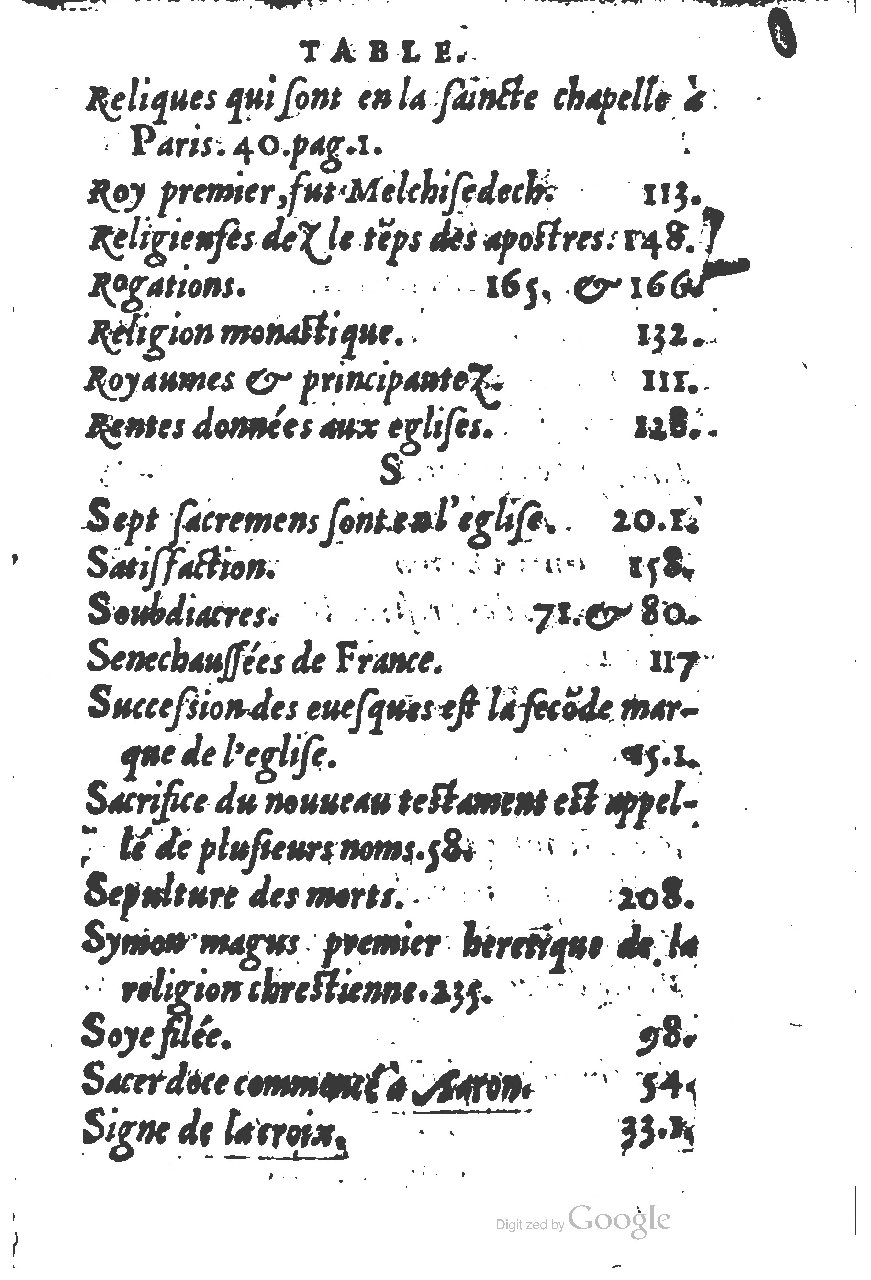 TABLE.
Reliques qui ſont en la ſaincte chapelle à
Paris. 40.pag.1.
Roy premier, fut Melchiſedech. 113.
Religieuſes dez le tẽps des apoſtres. 148.
Rogations. 165. & 166.
Religion monaſtique. 132.
Royaumes & principautez. 111.
Rentes données aux egliſes. 128.
S
Sept ſacremens ſont en l'egliſe. 20.1.
Satiſfaction. 158.
Soubdiacres. 71. & 80.
Senechauſſées de France. 117
Succeſsion des eueſques eſt la ſecõde mar-
que de l'egliſe. 15.1.
Sacrifice du nouueau teſtament eſt appel-
lé de pluſieurs noms. 58.
Sepulture des morts. 208.
Symon magus premier heretique de la
religion chreſtienne. 235.
Soye filée. 98.
Sacerdoce commencé à Aaron. 54.
Signe de la croix. 33.1.
Digitized by Google